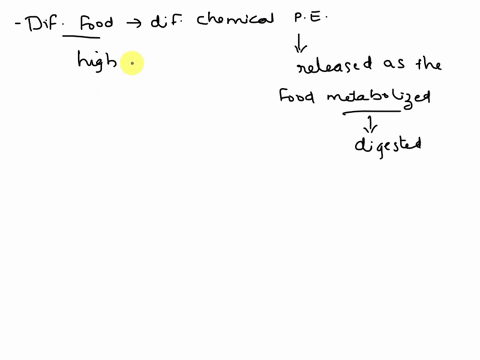 - Dif. Food → dif. chemical P.E.
high
↓
released as the
food metabolized
↓
digested